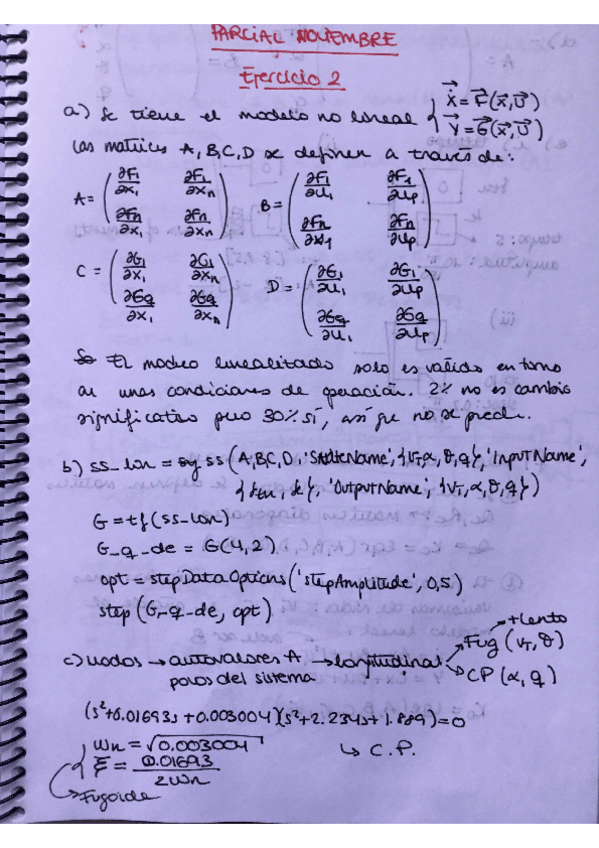 PARCIAL NOVIEMBRE
Ejercicio 2
a) Se tiene el modelo no lineal { Ẋ = F(x, U)
Y = G(x, U)
Las matrices A, B, C, D se definen a través de:
A = ( ∂F1/∂x1 ∂F1/∂xn
∂Fn/∂x1 ∂Fn/∂xn )
B = ( ∂F1/∂u1 ∂F1/∂up
∂Fn/∂x1 ∂Fn/∂up )
C = ( ∂G1/∂x1 ∂G1/∂xn
∂Gq/∂x1 ∂Gq/∂xn )
D = ( ∂G1/∂u1 ∂G1/∂up
∂Gq/∂u1 ∂Gq/∂up )
El modelo linealizado solo es válido en torno
a unas condiciones de operación. 2% no es cambio
significativo pero 30% sí, así que no se puede.
b) ss_lon = ss(A,B,C,D,'StateName',{VT,α,θ,q},'InputName',
{ , de}, 'OutputName', {VT,α,θ,q})
G = tf(ss-lon)
G_q_de = G(4,2)
opt = stepDataOptions('stepAmplitude', 0,5)
step(G_q_de, opt)
c) Modos → autovalores A → longitudinal
polos del sistema
+lento
Fug (VT, θ)
CP (α, q)
(s²+0.01693s+0.003004)(s²+2.234s+1.889)=0
ωn = √0.003004
↳ C.P.
ξ = 0.01693 / 2ωn
Fugoide